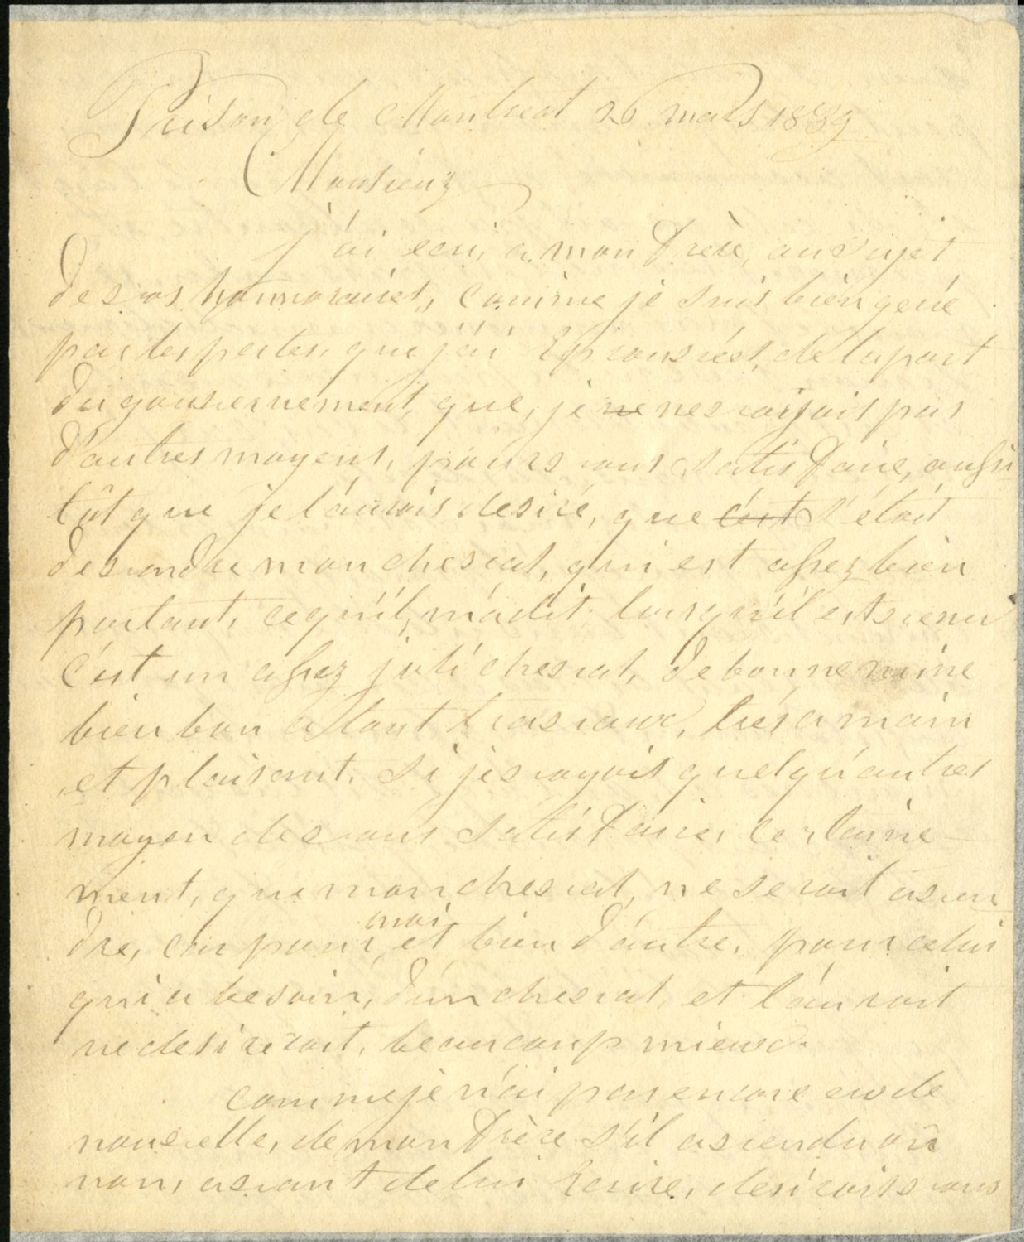 Prison de Montreal 26 mars 1839
Monsieur
J'ai ecri, a mon frère, au sujet
de vos honnoraires, comme je suis bien gené
par les pertes, que j'ai Eprouvées, de la part
du gouvernement, que, je ne ne voyois pas
d'autres moyens, pour vous satisfaire, aussi
tôt que je l'aurois desiré, que c'est s'étoit
de vendre mon cheval, qui est assez bien
portant, ce qu'il, m'a dit, lorsqu'il est venu
c'est un assez joli cheval, de bonne mine
bien bon a tout travaux, tres a main
et plaisant. si je voyois quelqu'autres
moyen de vous satisfaire, certaine-
ment, que mon cheval, ne seroit a ven
dre, car pour moi, et bien d'autre, pour celui
qui a besoin, d'un cheval, et l'auroit
ne desireroit, beaucoup mieux.
comme je n'ai pas encore eu de
nouvelle, de mon frère s'il a vendu ou
non, avant de lui Ecrire, desirois vous